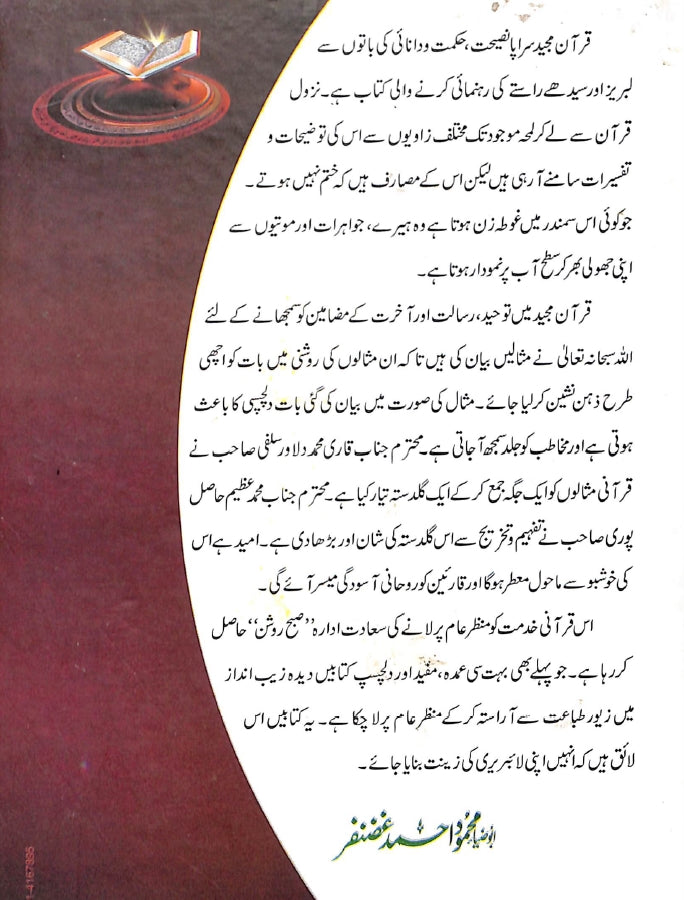 قرآن مجید سراپا نصیحت، حکمت و دانائی کی باتوں سے
لبریز اور سیدھے راستے کی رہنمائی کرنے والی کتاب ہے۔ نزول
قرآن سے لے کر لمحہ موجود تک مختلف زاویوں سے اس کی توضیحات و
تفسیرات سامنے آ رہی ہیں لیکن اس کے مصارف ہیں کہ ختم نہیں ہوتے۔
جو کوئی اس سمندر میں غوطہ زن ہوتا ہے وہ ہیرے، جواہرات اور موتیوں سے
اپنی جھولی بھر کر سطح آب پر نمودار ہوتا ہے۔
قرآن مجید میں توحید، رسالت اور آخرت کے مضامین کو سمجھانے کے لئے
اللہ سبحانہ تعالیٰ نے مثالیں بیان کی ہیں تاکہ ان مثالوں کی روشنی میں بات کو اچھی
طرح ذہن نشین کر لیا جائے۔ مثال کی صورت میں بیان کی گئی بات دلچسپی کا باعث
ہوتی ہے اور مخاطب کو جلد سمجھ آ جاتی ہے۔ محترم جناب قاری محمد دلاور سلفی صاحب نے
قرآنی مثالوں کو ایک جگہ جمع کر کے ایک گلدستہ تیار کیا ہے۔ محترم جناب محمد عظیم حاصل
پوری صاحب نے تفہیم و تخریج سے اس گلدستہ کی شان اور بڑھا دی ہے۔ امید ہے اس
کی خوشبو سے ماحول معطر ہوگا اور قارئین کو روحانی آسودگی میسر آئے گی۔
اس قرآنی خدمت کو منظر عام پر لانے کی سعادت ادارہ ”صبح روشن“ حاصل
کر رہا ہے۔ جو پہلے بھی بہت سی عمدہ، مفید اور دلچسپ کتابیں دیدہ زیب انداز
میں زیور طباعت سے آراستہ کر کے منظر عام پر لا چکا ہے۔ یہ کتابیں اس
لائق ہیں کہ انہیں اپنی لائبریری کی زینت بنایا جائے۔
ابوضیاء محمود احمد غضنفر